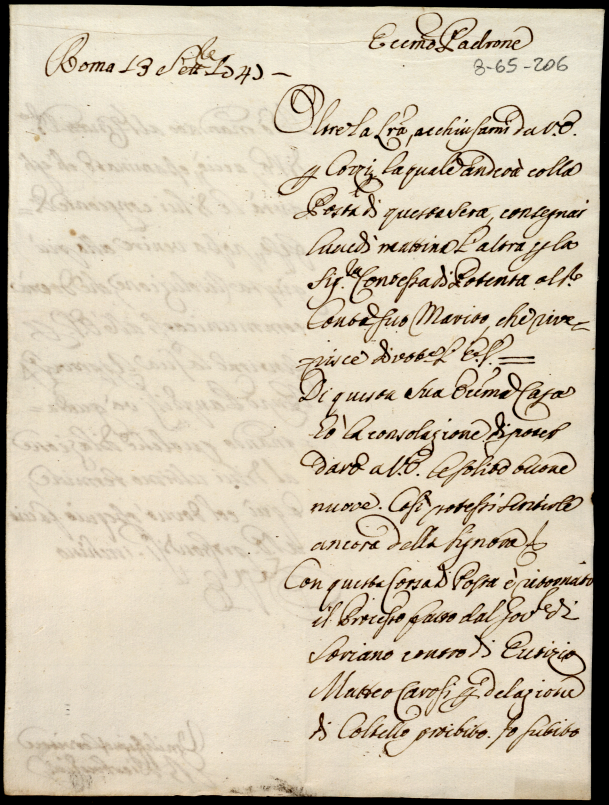 Eccmo Padrone
8-65-206
Roma 13 Sette
Oltre la Lra, acchiusami da V.E.
p Corzi, la quale andrà colla
Posta di questa sera, consegnai
lunedì mattina l'altra p la
Sig.ra Contessa di Potenza al Sr
Conte suo Marito, che rive=
risce divotte l'E.V. =
Di questa sua Eccma Casa
hò la consolazione di poter
dare a V.E. le solite buone
nuove. Così potessi scrivele
ancora della Signora
Con questa Corsa di Posta è ritornato
il Processo fatto dal Govre di
Soriano contro di Eutizio
Matteo Carosi p delazione
di Coltello proibito. Io subito